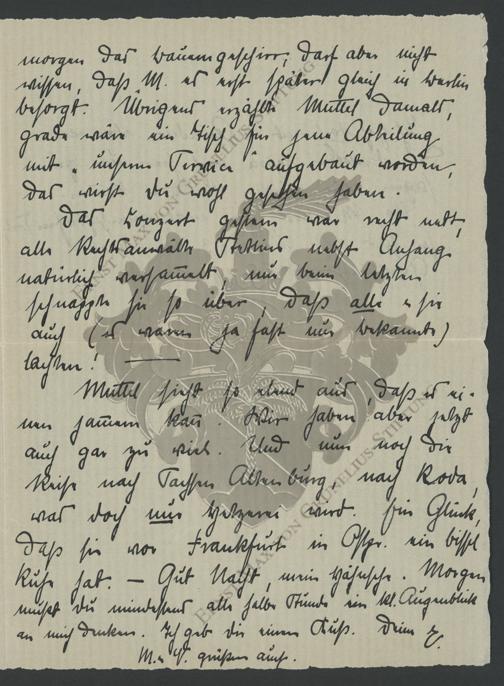 morgen das Bauerngeschirr, darf aber nicht
wissen, daß M. es erst später gleich in Berlin
besorgt. Übrigens erzählte Muttel damals,
grade wäre ein Tisch für jene Abteilung
mit „unserm Service“ aufgebaut worden,
das wirst Du wohl gesehen haben.
Das Konzert gestern war recht nett,
alle Rechtsanwälte Stettins nebst Anhang
natürlich versam̅elt, nur beim letzten
schnappte sie so über, daß alle u sie
auch (es waren ja fast nur Bekannte)
lachten!
Muttel sieht so elend aus, daß es ei-
nen jam̅ern kan̅. Wir haben aber jetzt
auch gar zu viel. Und nun noch die
Reise nach Sachsen Altenburg, nach Roda,
was doch nur Hetzerei wird. Ein Glück,
daß sie vor Frankfurt in Ostpr. ein bissl
Ruhe hat. — Gut Nacht, mein. Morgen
mußt Du mindestens alle halbe Stunde ein kl. Augenblick
an mich denken. Ich geb dir einen Kuß. Deine
M. u V. grüßen auch.
ERNST MAX VON GRUNELIUS-STIFTUNG
ERNST MAX VON GRUNELIUS-STIFTUNG